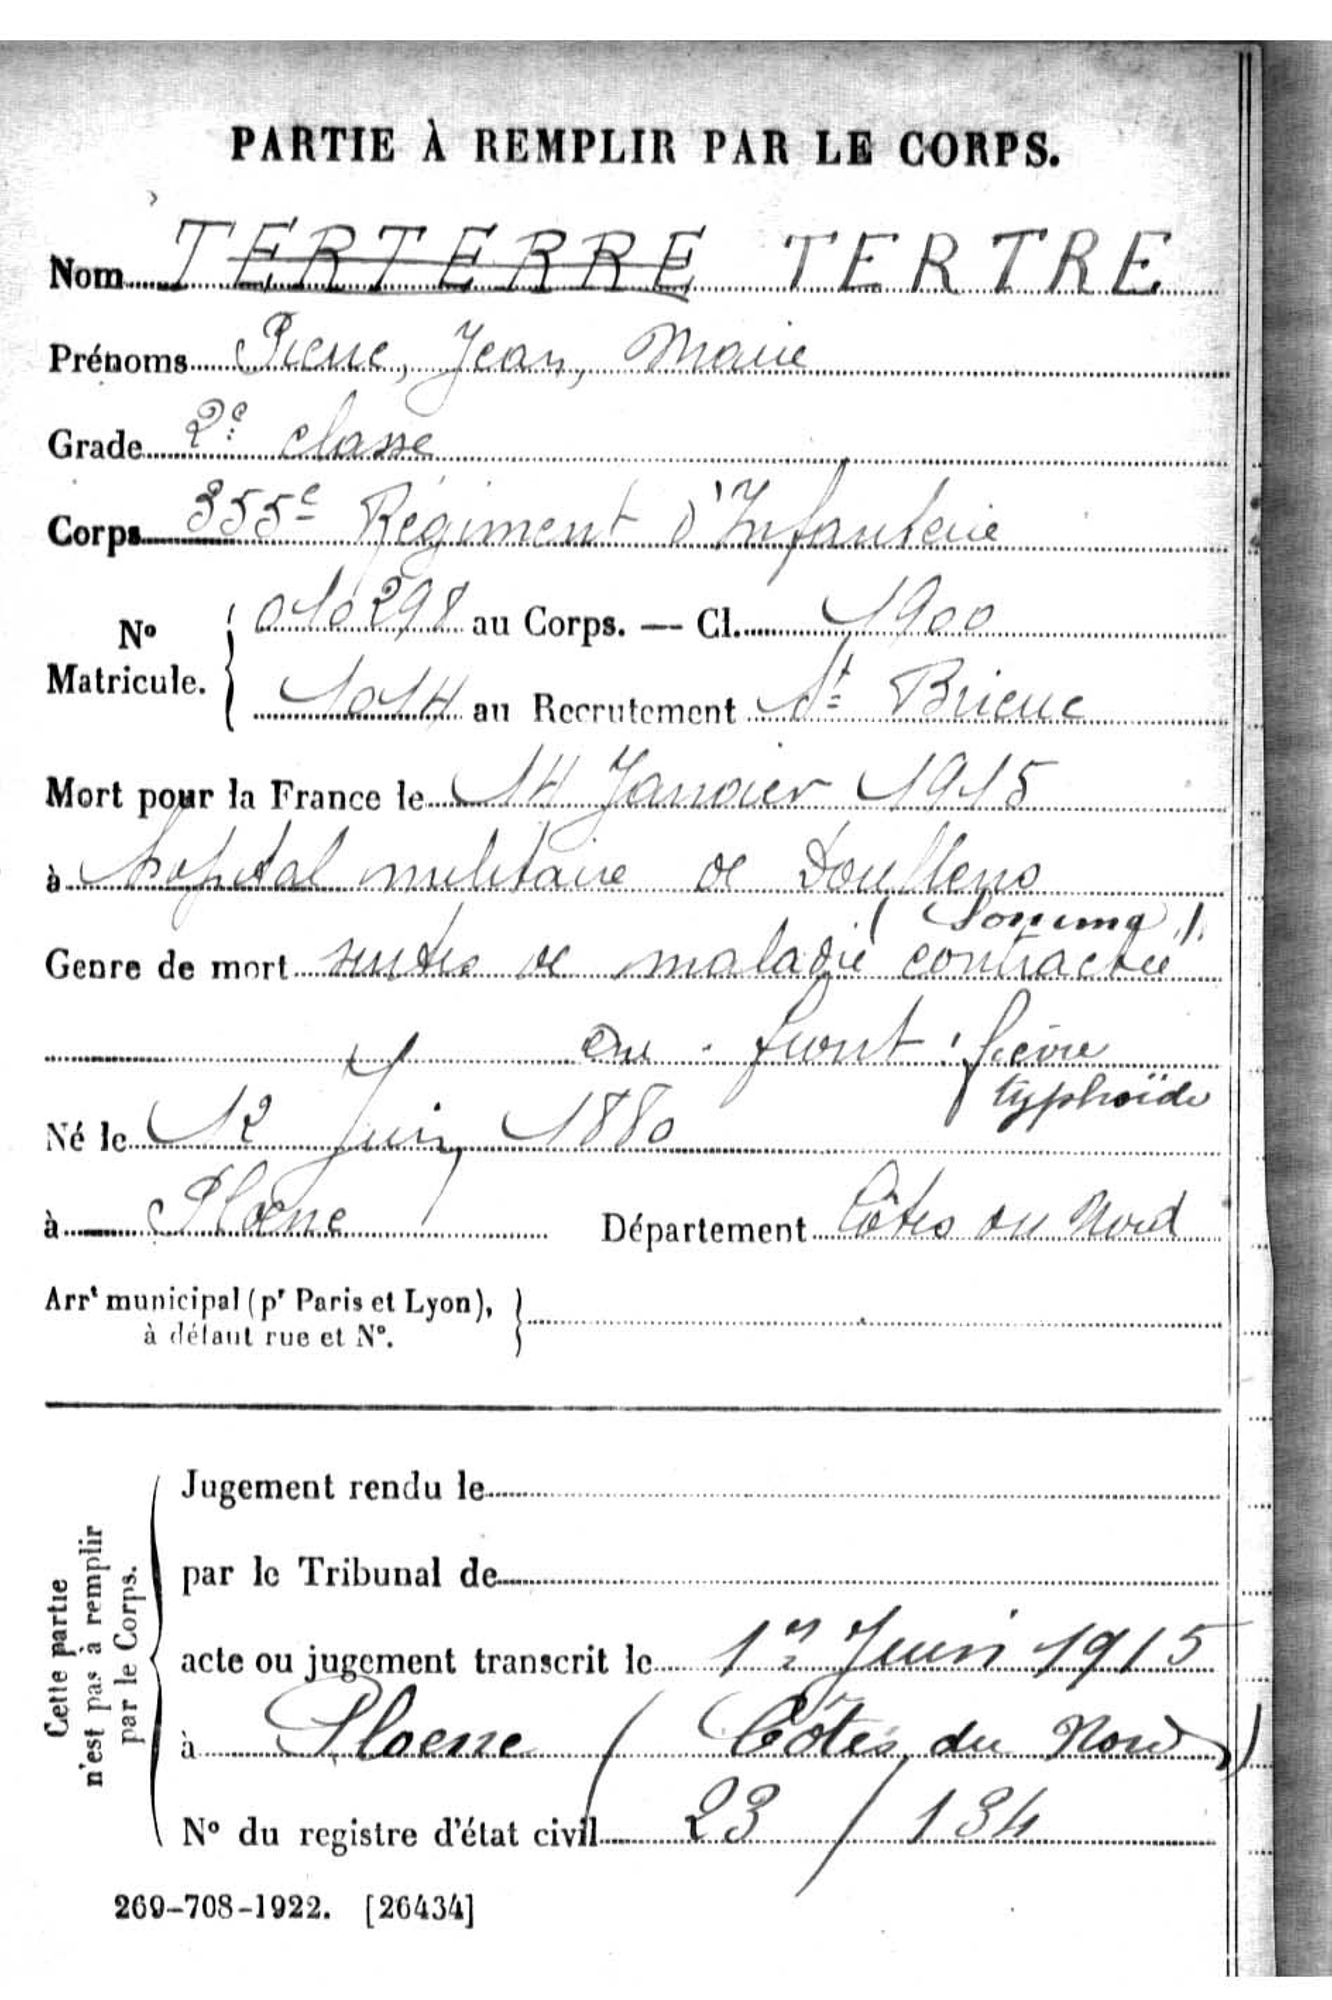 PARTIE À REMPLIR PAR LE CORPS.
Nom TERTERRE TERTRE
Prénoms Pierre, Jean, Marie
Grade 2e classe
Corps 355e Régiment d'Infanterie
No Matricule. { 010298 au Corps. — Cl. 1900
1014 au Recrutement St Brieuc
Mort pour la France le 14 Janvier 1915
à hopital militaire de Doullens
( Somme ).
Genre de mort suites de maladie contractée
au front : fièvre
typhoïde
Né le 12 Juin 1880
à Ploeuc Département Côtes du Nord
Arrt municipal (pr Paris et Lyon), }
à défaut rue et No.
Cette partie
n'est pas à remplir
par le Corps.
Jugement rendu le
par le Tribunal de
acte ou jugement transcrit le 1er Juin 1915
à Ploeuc ( Côtes du Nord )
No du registre d'état civil 23 / 134
269-708-1922. [26434]